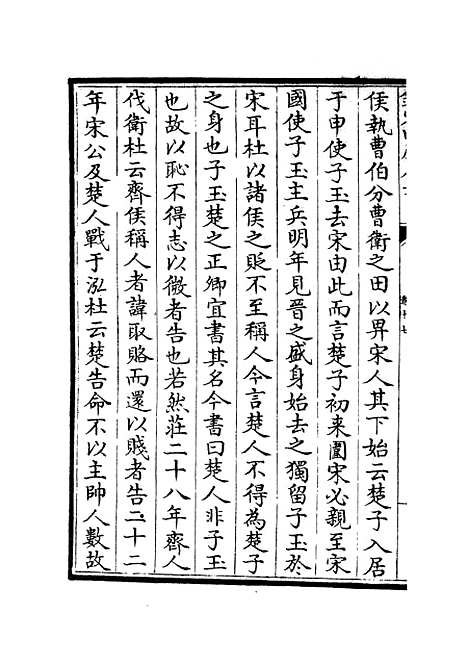 侯執曹伯分曹衛之田以畀宋人其下始云楚子入居
于申使子玉去宋由此而言楚子初来圍宋必親至宋
國使子玉主兵明年見晉之盛身始去之獨留子玉於
宋耳杜以諸侯之貶不至稱人今言楚人不得為楚子
之身也子玉楚之正卿宜書其名今書曰楚人非子玉
也故以恥不得志以微者告也若然莊二十八年齊人
伐衛杜云齊侯稱人者諱取賂而還以賤者告二十二
年宋公及楚人戰于泓杜云楚告命不以主帥人數故